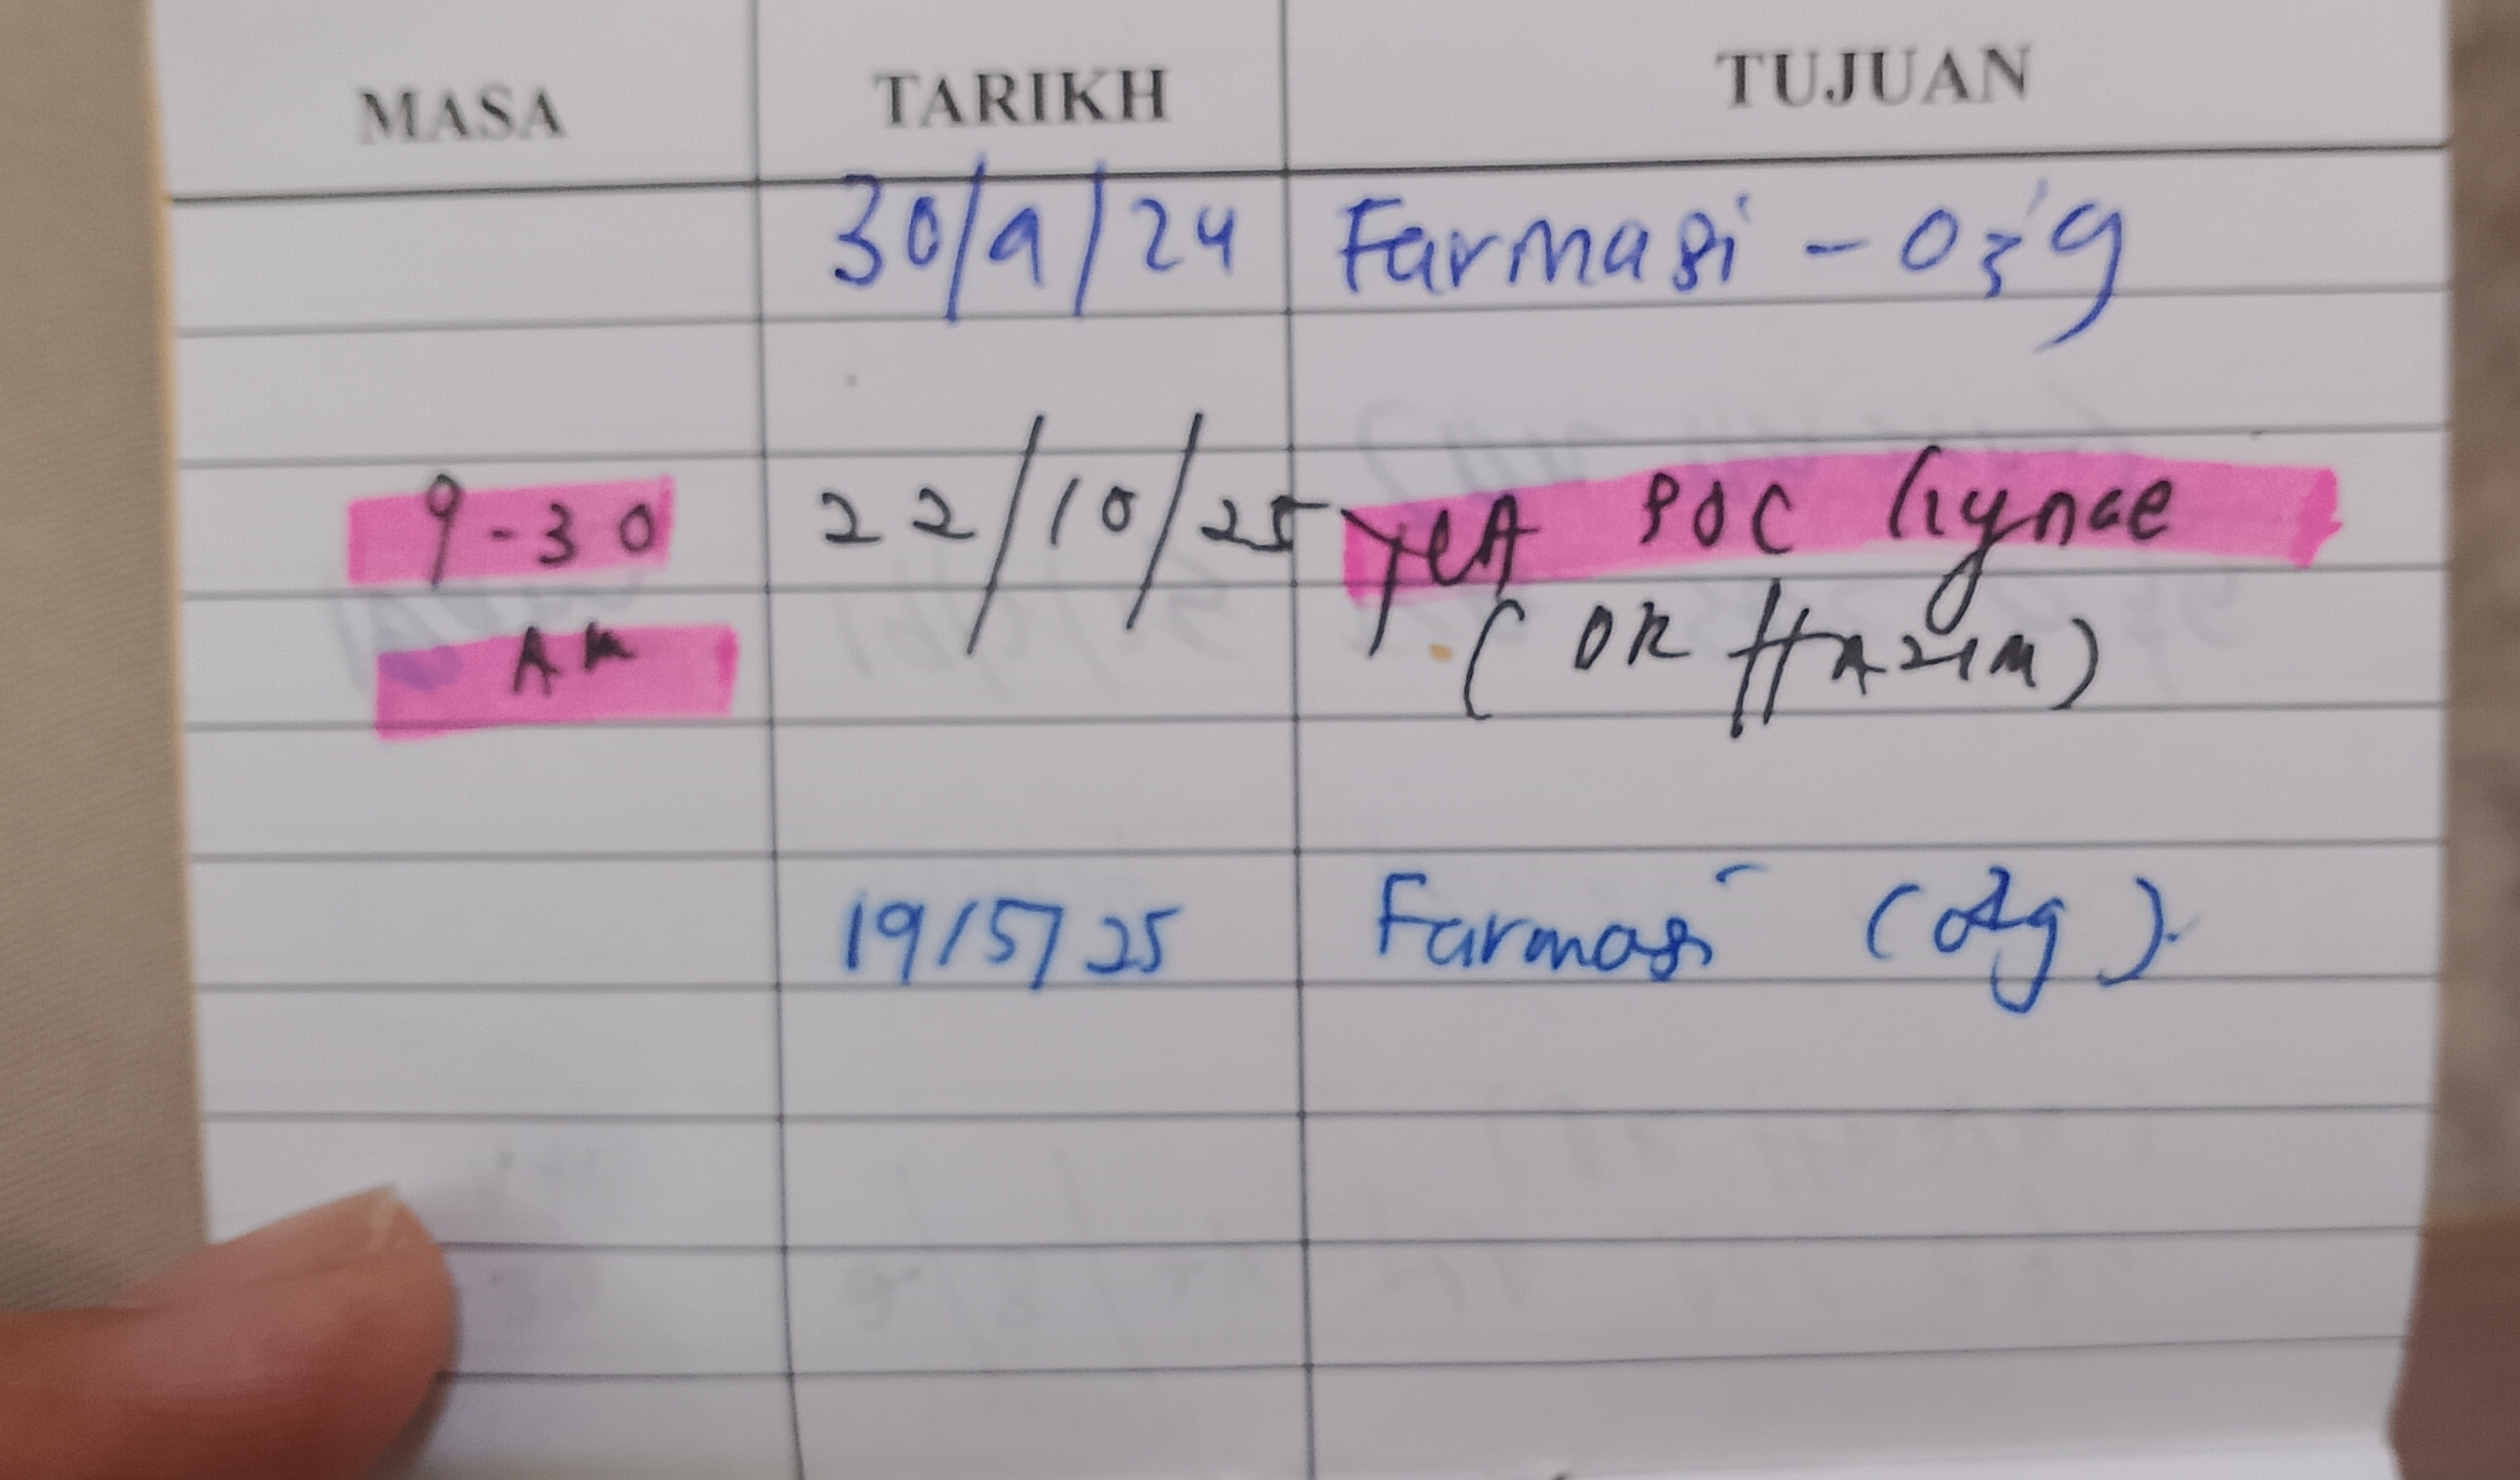 MASA TARIKH TUJUAN
30/9/24 Farmasi - O3'g
9-30 22/10/25 TCA POC Gynae
AM (DR HAZIM)
19/5/25 Farmasi (O&g).